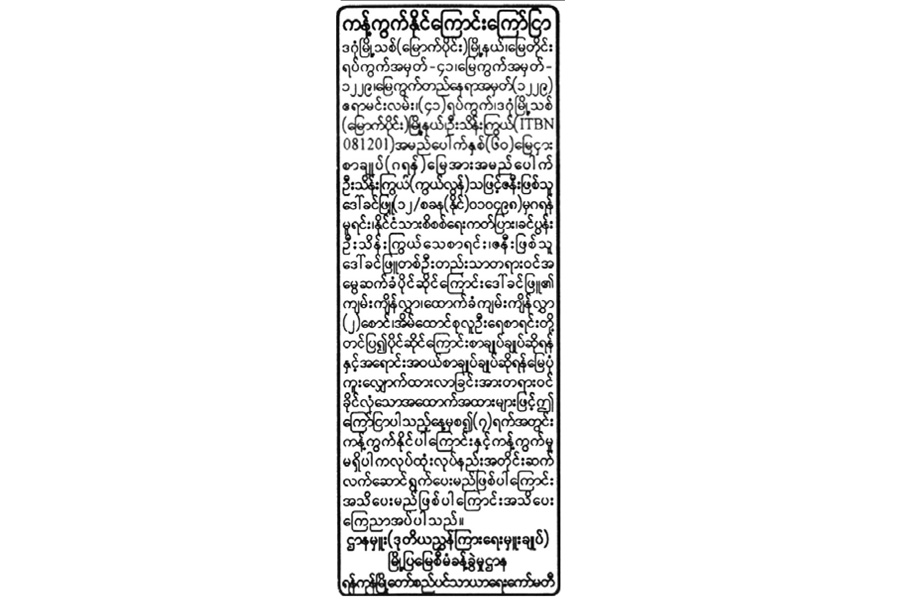 ကန့်ကွက်နိုင်ကြောင်းကြော်ငြာ
ဒဂုံမြို့သစ်(မြောက်ပိုင်း)မြို့နယ်၊မြေတိုင်း
ရပ်ကွက်အမှတ်-၄၁၊မြေကွက်အမှတ်-
၁၂၂၉၊မြေကွက်တည်နေရာအမှတ်(၁၂၂၉)
ဧရာမင်းလမ်း၊(၄၁)ရပ်ကွက်၊ဒဂုံမြို့သစ်
(မြောက်ပိုင်း)မြို့နယ်၊ဦးသိန်းကြွယ်(ITBN
081201)အမည်ပေါက်နှစ်(၆၀)မြေငှား
စာချုပ်(ဂရန်)မြေအားအမည်ပေါက်
ဦးသိန်းကြွယ်(ကွယ်လွန်)သဖြင့်ဇနီးဖြစ်သူ
ဒေါ်ခင်ဖြူ(၁၂/စခန(နိုင်)၀၁၀၄၉၈)မှဂရန်
မူရင်း၊နိုင်ငံသားစိစစ်ရေးကတ်ပြား၊ခင်ပွန်း
ဦးသိန်းကြွယ်သေစာရင်း၊ဇနီးဖြစ်သူ
ဒေါ်ခင်ဖြူတစ်ဦးတည်းသာတရားဝင်အ
မွေဆက်ခံပိုင်ဆိုင်ကြောင်းဒေါ်ခင်ဖြူ၏
ကျမ်းကျိန်လွှာ၊ထောက်ခံကျမ်းကျိန်လွှာ
(၂)စောင်၊အိမ်ထောင်စုလူဦးရေစာရင်းတို့
တင်ပြ၍ပိုင်ဆိုင်ကြောင်းစာချုပ်ချုပ်ဆိုရန်
နှင့်အရောင်းအဝယ်စာချုပ်ချုပ်ဆိုရန်မြေပုံ
ကူးလျှောက်ထားလာခြင်းအားတရားဝင်
ခိုင်လုံသောအထောက်အထားများဖြင့်ဤ
ကြော်ငြာပါသည့်နေ့မှစ၍(၇)ရက်အတွင်း
ကန့်ကွက်နိုင်ပါကြောင်းနှင့်ကန့်ကွက်မှု
မရှိပါကလုပ်ထုံးလုပ်နည်းအတိုင်းဆက်
လက်ဆောင်ရွက်ပေးမည်ဖြစ်ပါကြောင်း
အသိပေးမည်ဖြစ်ပါကြောင်းအသိပေး
ကြေညာအပ်ပါသည်။
ဌာနမှူး(ဒုတိယညွှန်ကြားရေးမှူးချုပ်)
မြို့ပြမြေစီမံခန့်ခွဲမှုဌာန
ရန်ကုန်မြို့တော်စည်ပင်သာယာရေးကော်မတီ